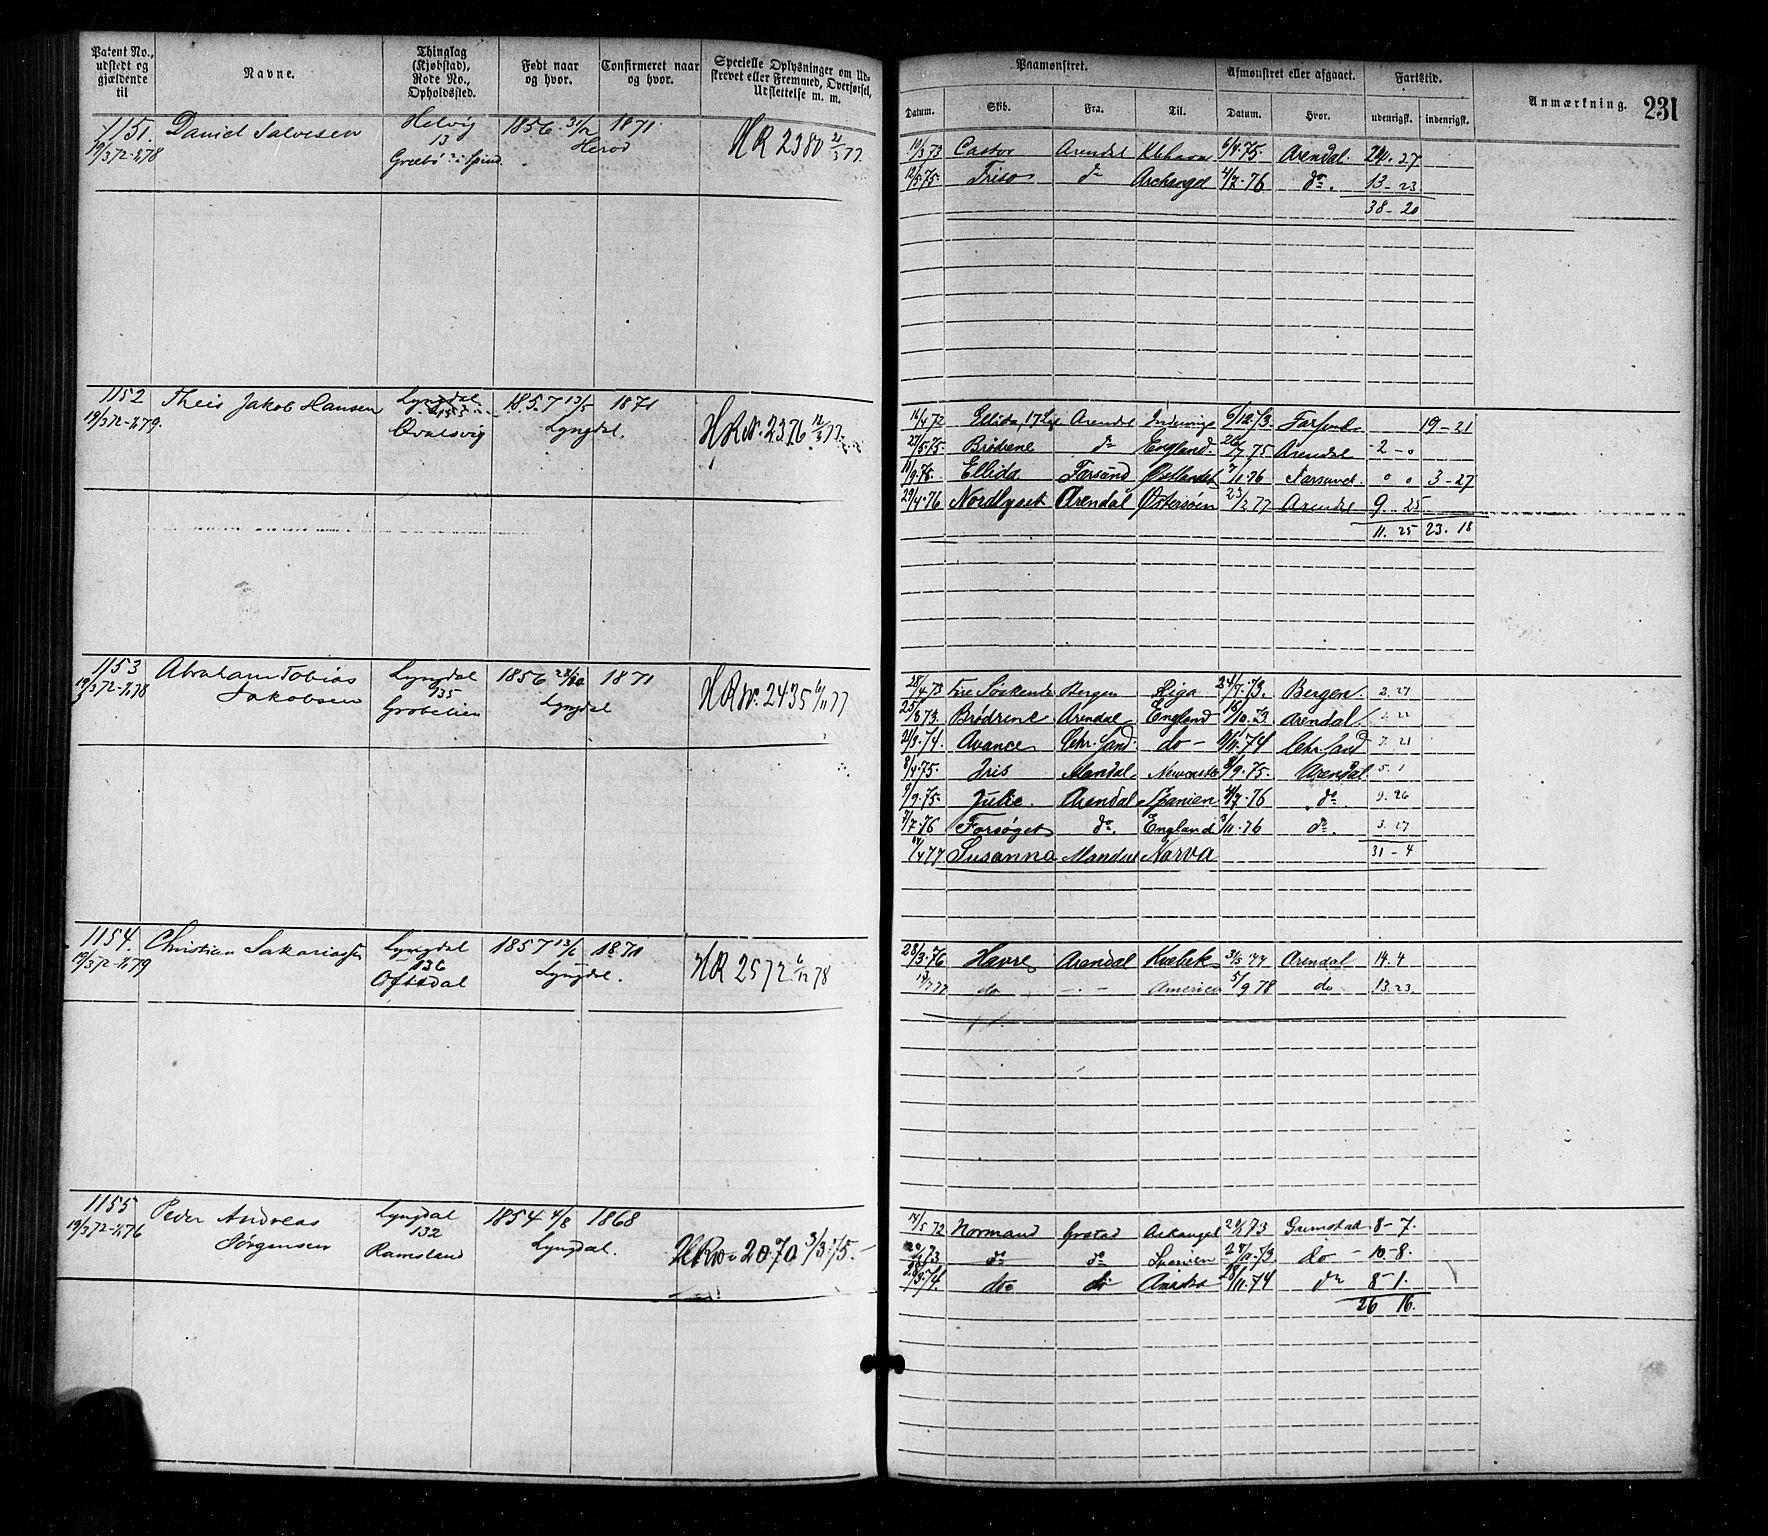 Patent No., udstedt og gjældende til
Navne.
Thinglag (Kjøbstad), Rode No., Opholdssted.
Født naar og hvor.
Confirmeret naar og hvor.
Specielle Oplysninger om Udskrevet eller Fremmed, Overførsel, Udslettelse m. m.
Paamønstret.
Afmønstret eller afgaaet.
Fartstid.
Anmærkning.
231
Datum.
Skib.
Fra.
Til.
Datum.
Hvor.
udenrigsk.
indenrigsk.
1151. Daniel Salvesen Helvig 1856 31/12 1871.
19/3 72-1/1 78 13 Herod HR 2380 21/3 77
Spind
19/3 73 Castor Arendal Kbhavn 6/4 75. Arendal. 24. 27
12/5 75. Friso do Archangel 4/7. 76 do. 13 - 23
38 - 20
1152 Theis Jakob Hansen Lyngdal 1857 13/5 1871
19/3 72-1/1 79. Qvalsvig Lyngdal. HR No. 2376 12/3 77
16/4 72 Ellida, Arendal 6/12 73. Farsund 19 - 21
27/5 75. Brødrene do England. 26/7 75 Arendal 2 - 0
11/9 75. Ellida Farsund Østlandet 7/1. 76 Farsund. 0 0 3 - 27
29/4 76 Nordlyset Arendal Østersøen 23/2 77 Arendal 9. 25
11. 25 23. 18
1153 Abraham Tobias Lyngdal 1856 1871
19/3 72-1/1 78 Jakobsen 135 Lyngdal HR No. 2435 6/11 77
28/4 73 Fire Søskende Bergen Riga 24/7. 73. Bergen. 2. 27
25/8 73. Brødrene Arendal England 16/10. 73 Arendal
21/3. 74. Avance Chr. sand do - 11/11. 74 Chr. sand 7. 21
8/4. 75. Iris Mandal Newcastle 8/9. 75. Arendal 5. 1
9/9. 75. Julie. Arendal Spanien 4/7. 76 do 9. 26
7/7. 76 Forsøget do. England 3/11. 76 do. 3. 27
4 77 Susanna Mandal Narva 31 - 4
1154. Christian Sakariassen Lyngdal 1857 13/6 1871
19/3 72-1/1 79 136 Lyngdal. HR 2572 6/12 78
Oftedal
28/3. 76 Havre Arendal Kvebek 3/5 77 Arendal 14. 4
77 do - . - America 5/9 78 do 13. 23.
1155 Peder Andreas Lyngdal 1854 4/8 1868
19/3 72-1/1 76 Jørgensen 132 Lyngdal. HR No 2070 3/3. 75. -
Ramsland
14/5 72 Normand Grstad Arkangel 73 Grimstad 8 - 7.
73 do do Spanien do - 10 - 8.
74. do do 28/11. 74 do 8 - 1.
26 16.